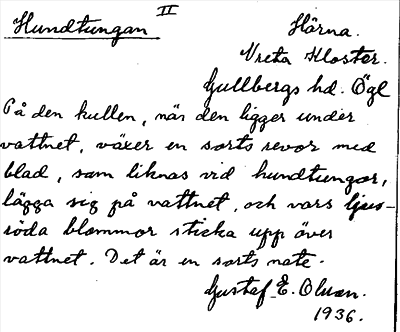 Hundtungan II
Hörna.
Vreta Kloster.
Gullbergs hd. Ögl
På den kullen, när den ligger under
vattnet, växer en sorts revor med
blad, som liknas vid hundtungor,
lägga sig på vattnet, och vars ljus-
röda blommor sticka upp över
vattnet. Det är en sorts nate.
Gustaf E. Olsson.
1936.